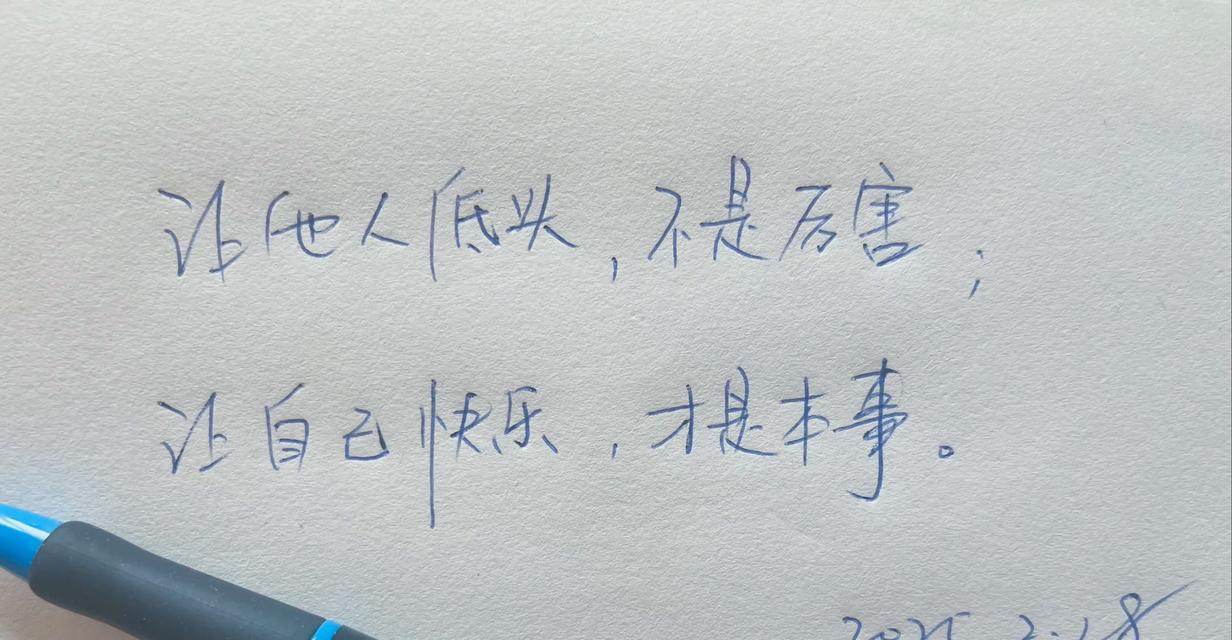 让他人低头，不是厉害；
让自己快乐，才是本事。
2025.2.18